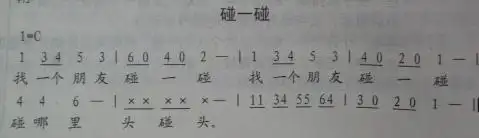 碰一碰
1=C
1 3 4 5 3 | 6 0 4 0 2 — | 1 3 4 5 3 | 4 0 2 0 1 — |
找 一个 朋 友 碰 一 碰 找 一个 朋 友 碰 一 碰
4 4 6 — | × × × × × — | 11 34 55 64 | 3 0 2 0 1 — ||
碰 哪 里 头 碰 头。